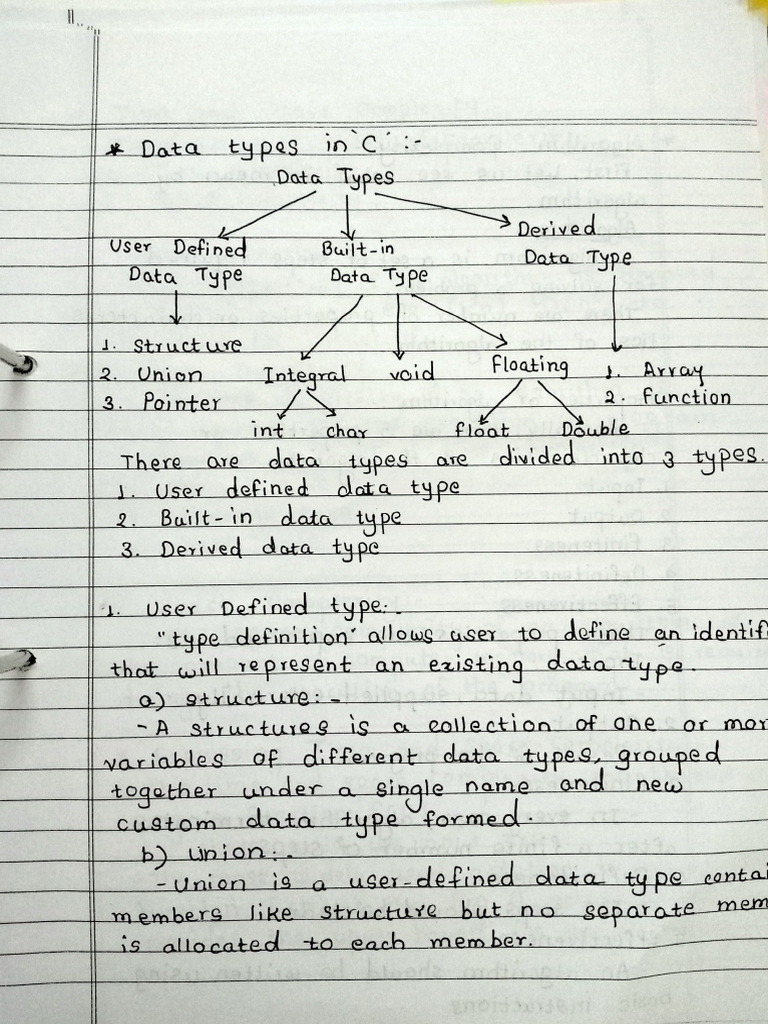 * Data types in 'C' :-
Data Types
User Defined Data Type
Built-in Data Type
Derived Data Type
1. Structure
2. Union
3. Pointer
Integral void Floating
1. Array
2. Function
int char float Double
There are data types are divided into 3 types.
1. User defined data type
2. Built-in data type
3. Derived data type
1. User Defined type:-
"type definition" allows user to define an identif
that will represent an existing data type.
a) structure:-
- A structures is a collection of one or mor
variables of different data types, grouped
together under a single name and new
custom data type formed.
b) union:-
- Union is a user-defined data type contai
members like structure but no separate mem
is allocated to each member.